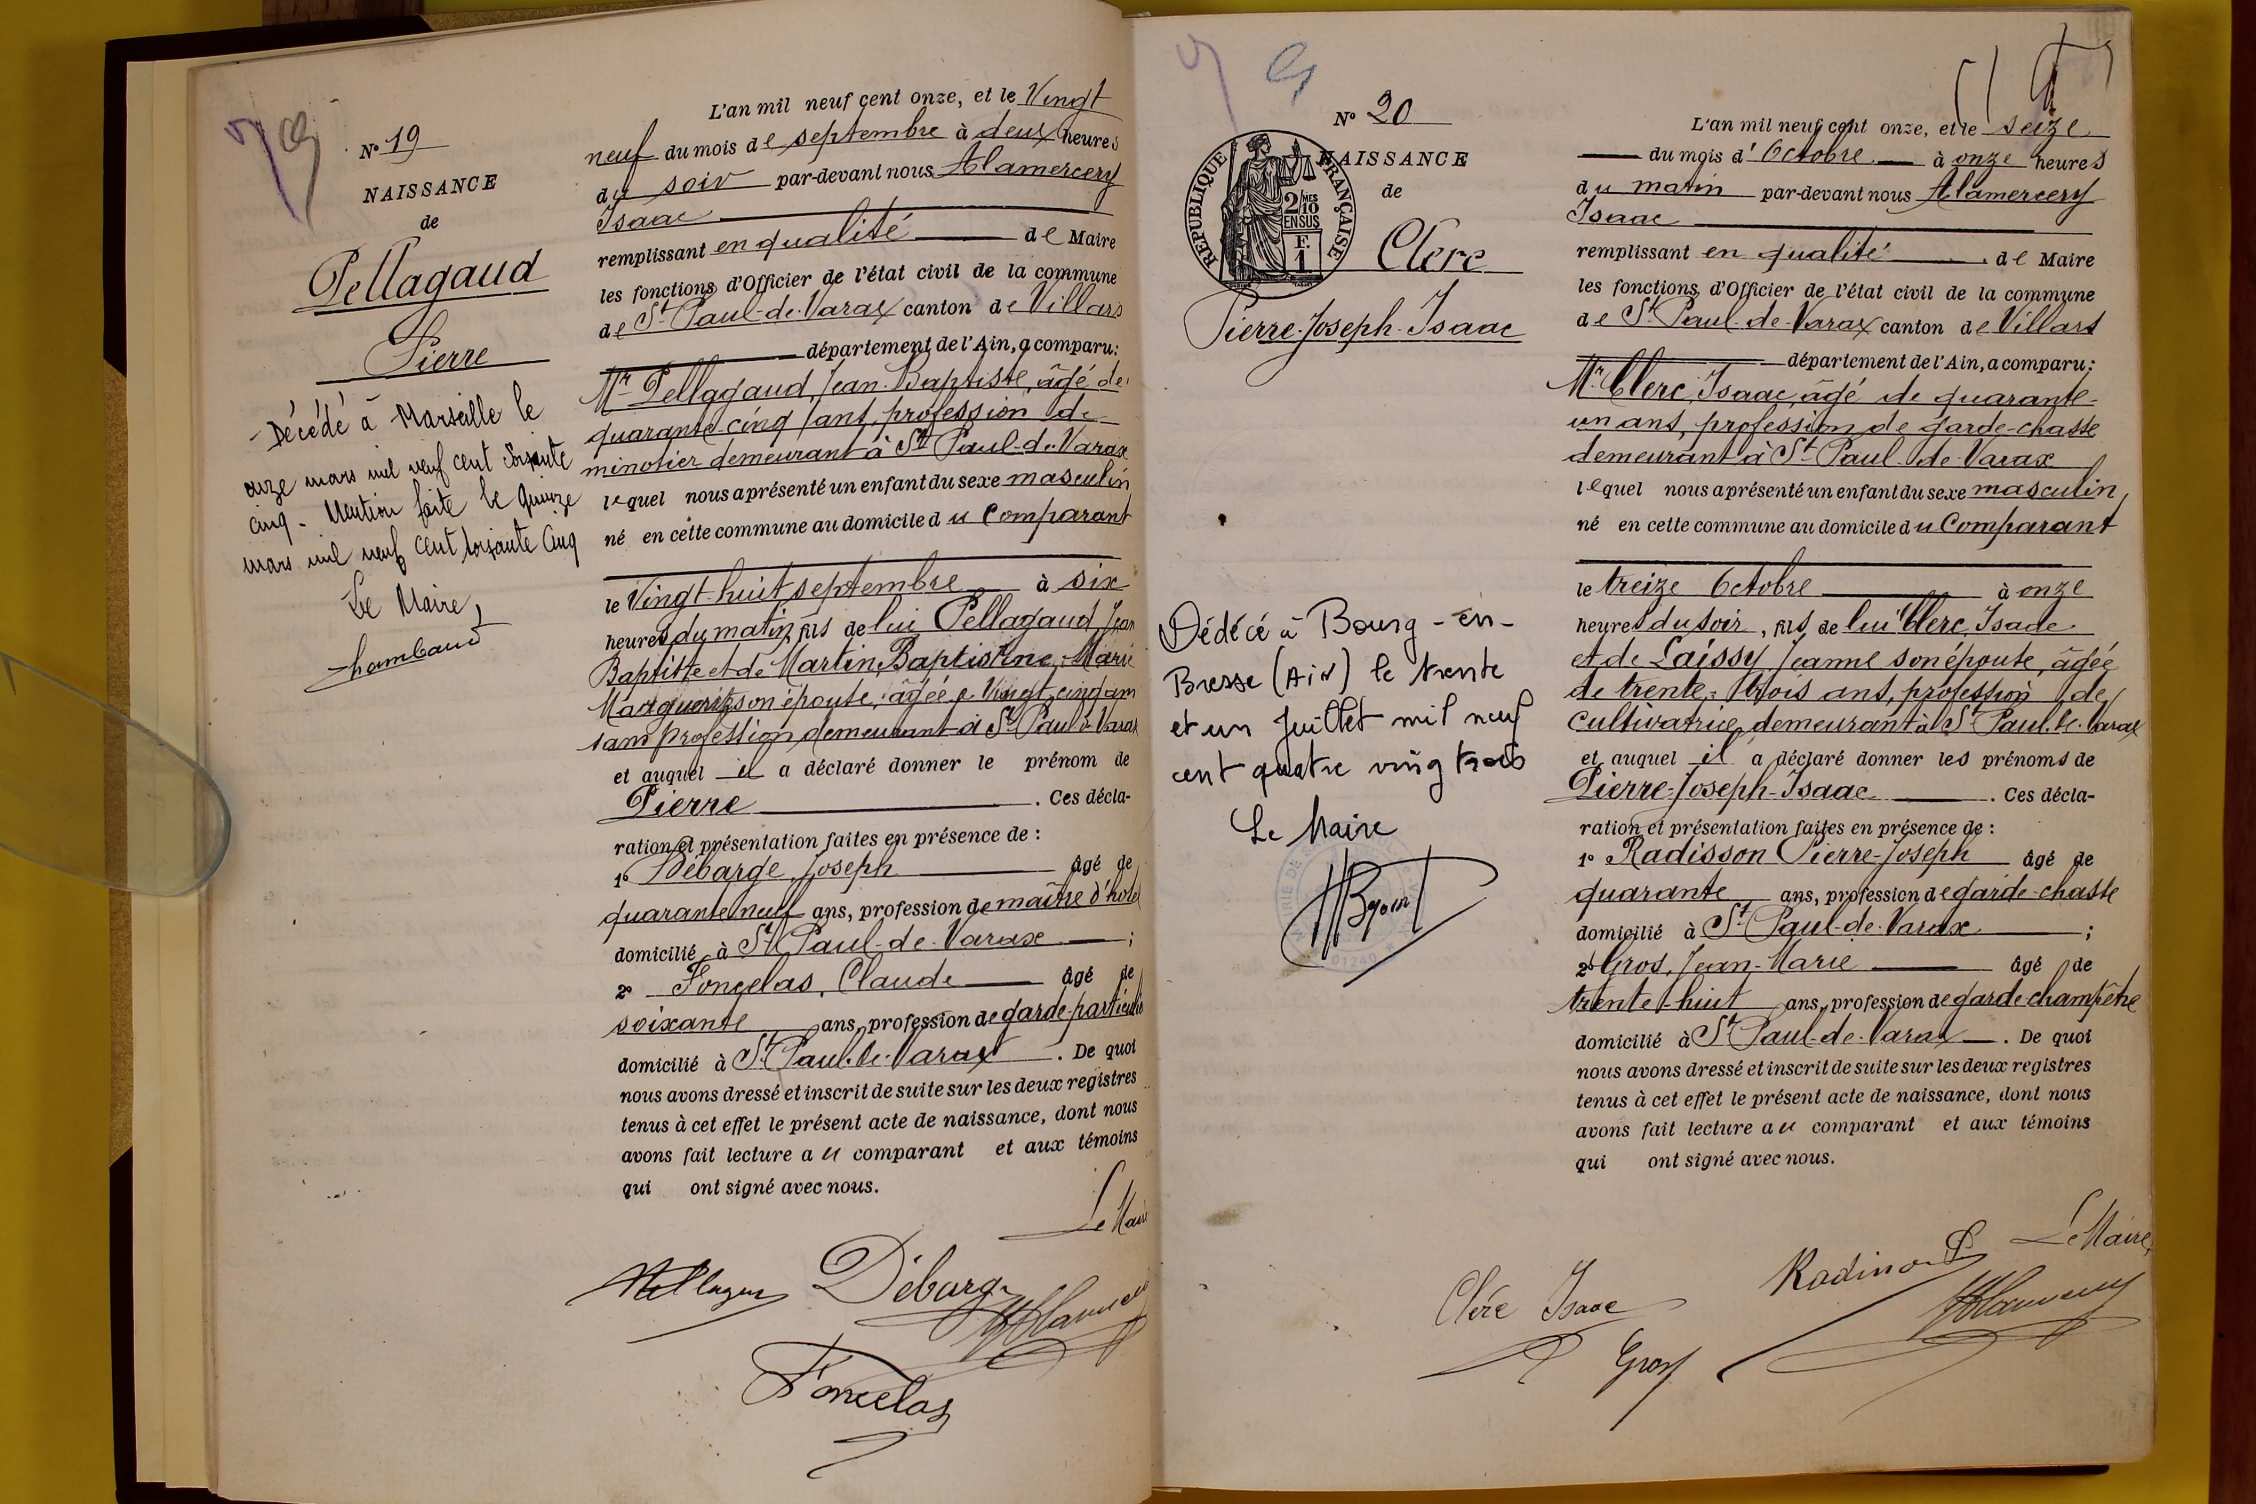 N° 19
NAISSANCE
de
Pellagaud
Pierre
Décédé à Marseille le
onze mars mil neuf cent soixante
cinq - Mention faite le quinze
mars mil neuf cent soixante cinq
Le Maire,
Chambaud
L'an mil neuf cent onze, et le Vingt
neuf du mois de septembre à deux heures
du soir par-devant nous Alamercery
Isaac
remplissant en qualité de Maire
les fonctions d'Officier de l'état civil de la commune
de St Paul-de-Varax canton de Villars
département de l'Ain, a comparu:
Mr Pellagaud, Jean-Baptiste, âgé de
quarante cinq ans, profession de
minotier demeurant à St Paul-de-Varax
lequel nous a présenté un enfant du sexe masculin
né en cette commune au domicile du Comparant
le Vingt-huit septembre à six
heures du matin, fils de lui Pellagaud Jean
Baptiste et de Martin, Baptistine, Marie
Marguerite son épouse, âgée de Vingt cinq ans
sans profession demeurant à St Paul de Varax
et auquel il a déclaré donner le prénom de
Pierre. Ces décla-
ration et présentation faites en présence de :
1° Débarge, Joseph âgé de
quarante neuf ans, profession de maître d'hotel
domicilié à St Paul-de-Varax ;
2° Foncelas, Claude âgé de
soixante ans, profession de garde-particulier
domicilié à St Paul-de-Varax. De quoi
nous avons dressé et inscrit de suite sur les deux registres
tenus à cet effet le présent acte de naissance, dont nous
avons fait lecture au comparant et aux témoins
qui ont signé avec nous.
Le Maire
Débarge
Foncelas
N° 20
NAISSANCE
de
RÉPUBLIQUE FRANÇAISE
2/10 MES
EN SUS
F.
1
Clerc
Pierre-Joseph-Isaac
Dédécé à Bourg-en-
Bresse (AIN) le trente
et un Juillet mil neuf
cent quatre ving trois
Le Maire
01240
L'an mil neuf cent onze, et le seize
du mois d'Octobre à onze heures
du matin par-devant nous Alamercery
Isaac
remplissant en qualité de Maire
les fonctions d'Officier de l'état civil de la commune
de St Paul-de-Varax canton de Villars
département de l'Ain, a comparu:
Mr Clerc, Isaac, âgé de quarante-
un ans, profession de garde-chasse
demeurant à St Paul-de-Varax
lequel nous a présenté un enfant du sexe masculin,
né en cette commune au domicile du Comparant
le treize Octobre à onze
heures du soir, fils de lui Clerc, Isaac
et de Laissy Jeanne son épouse, âgée
de trente-trois ans, profession de
cultivatrice demeurant à St Paul-de-Varax
et auquel il a déclaré donner les prénoms de
Pierre-Joseph-Isaac. Ces décla-
ration et présentation faites en présence de :
1° Radisson Pierre-Joseph âgé de
quarante ans, profession de garde-chasse
domicilié à St Paul-de-Varax ;
2° Gros, Jean-Marie âgé de
trente-huit ans, profession de garde-champêtre
domicilié à St Paul-de-Varax. De quoi
nous avons dressé et inscrit de suite sur les deux registres
tenus à cet effet le présent acte de naissance, dont nous
avons fait lecture au comparant et aux témoins
qui ont signé avec nous.
Le Maire,
Clerc Isaac
Gros